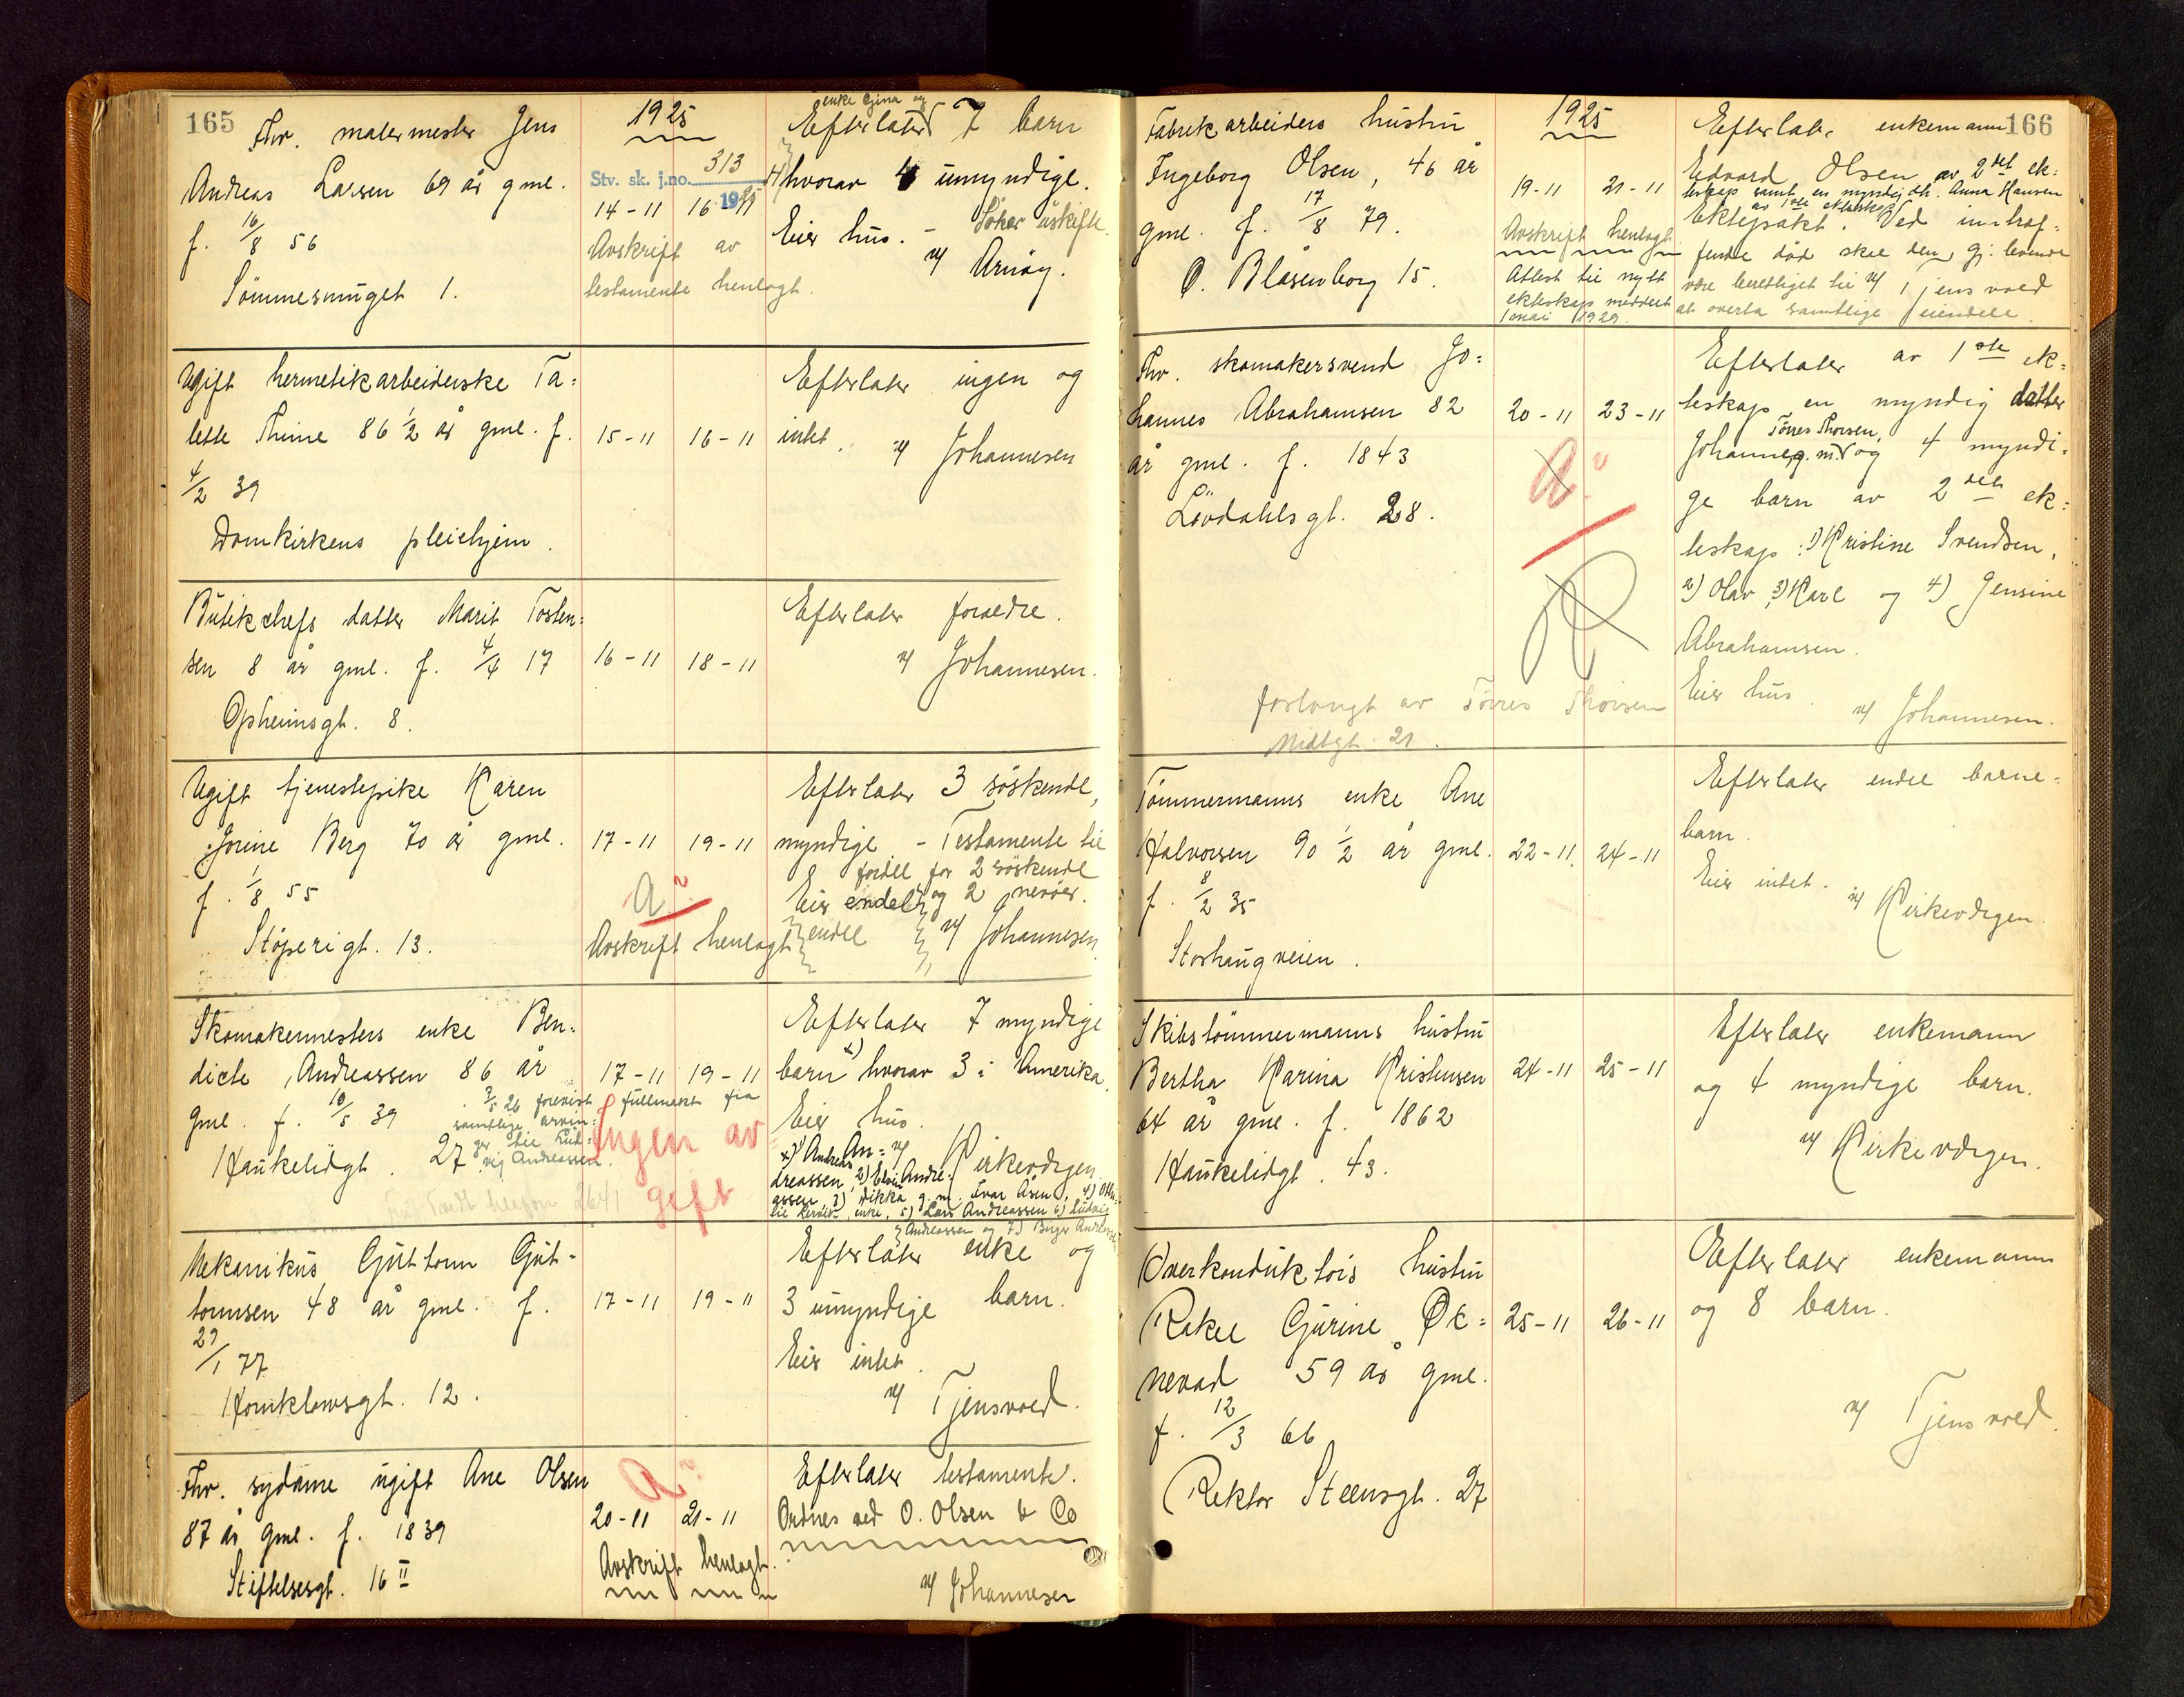 165
Fhv. malermester Jens
Andreas Larsen 69 år gml.
f. 16/8 56
Sømmesmuget 1.
1925
Stv. sk. j.no. 313
1925
14-11 16-11
Avskrift av
testamente henlagt.
enke Gina og
Efterlater 7 barn
hvorav 4 umyndige.
Eier hus. - Søker uskifte.
v/ Arnøy.
Ugift hermetikarbeiderske Ta=
lette Thime 86 1/2 år gml. f.
4/2 39
Domkirkens pleiehjem.
15-11 16-11
Efterlater ingen og
intet. v/ Johannesen
Butikchefs datter Marit Tosten=
sen 8 år gml. f. 4/4 17
Opheimsgt. 8.
16-11 18-11
Efterlater foreldre.
v/ Johannesen.
Ugift tjenestepike Karen
Jorine Berg 70 år gml.
f. 1/8 55
Støperigt. 13.
17-11 19-11
a
Avskrift henlagt
Efterlater 3 søskende,
myndige - Testamente til
fordel for 2 søskende
Eier endel og 2 nevøer.
endel v/ Johannesen
Skomakermesters enke Ben=
dicte Andreassen 86 år
gml. f. 10/5 39
Haukeligt. 27
3/5 26 forevist fullmakt fra
samtlige arvin=
ger til Lud=
vig Andreassen.
telefon 2641
17-11 19-11
Ingen av
gift
Efterlater 7 myndige
barn x) hvorav 3 i Amerika.
Eier hus.
v/ Kirkevergen
x) 1) Andreas An=
dreassen, 2) Edvin Andre=
assen, 3) Dikka g.m. Ivar Åsen, 4) Otti=
lie enke, 5) Lars Andreassen 6) Ludvig
Andreassen og 7) Birger Andreassen
Mekanikus Guttorm Gut=
tormsen 48 år gml. f.
29/1 77
Hornklowsgt. 12.
17-11 19-11
Efterlater enke og
3 umyndige barn.
Eier intet.
v/ Tjensvold.
Fhv. sydame ugift Ane Olsen
87 år gml. f. 1839
Stiftelsesgt. 16 II
a
20-11 21-11
Avskrift henlagt.
Efterlater testamente.
Ordnes ved O. Olsen & Co
v/ Johannesen
166
Fabrikarbeiders hustru
Ingeborg Olsen, 46 år
gml. f. 17/8 79.
Ø. Blåsenborg 15.
1925
19-11 21-11
Avskrift henlagt
Attest til nytt
ekteskap meddelt
1 mai 1929.
Efterlater enkemann
Edvard Olsen av 2det ek=
teskap samt en myndig dt. Anna Hansen
av 1ste ekteskap
Ektepakt. Ved inntref=
fende død skal den gj. levende
være berettiget til
at overta samtlige eiendele.
v/ Tjensvold
Fhv. skomakersvend Jo=
hannes Abrahamsen 82
år gml. f. 1843
Løvdahlsgt. 28.
20-11 23-11
a
forlangt av Tørres Thorsen
Nidtgt. 21.
Efterlater av 1ste ek=
teskap en myndig datter
Johanne, g.m. Tørres Thorsen, og 4 myndi=
ge barn av 2det ek=
teskap: 1) Kristine Svendsen,
2) Olav, 3) Karl og 4) Jensine
Abrahamsen.
Eier hus.
v/ Johannesen.
Tømmermanns enke Ane
Halvorsen 90 1/2 år gml.
f. 8/2 35
Storhaugveien.
22-11. 24-11
Efterlater endel barne=
barn.
Eier intet.
v/ Kirkevergen.
Skibstømmermanns hustru
Bertha Karina Kristensen
64 år gml. f. 1862
Haukeligt. 43.
24-11 25-11
Efterlater enkemann
og 4 myndige barn.
v/ Kirkevergen.
Overkonduktørs hustru
Rakel Gurine Øk=
nevad 59 år gml.
f. 12/3 66
Rektor Steensgt. 27
25-11 26-11
Efterlater enkemann
og 8 barn.
v/ Tjensvold.